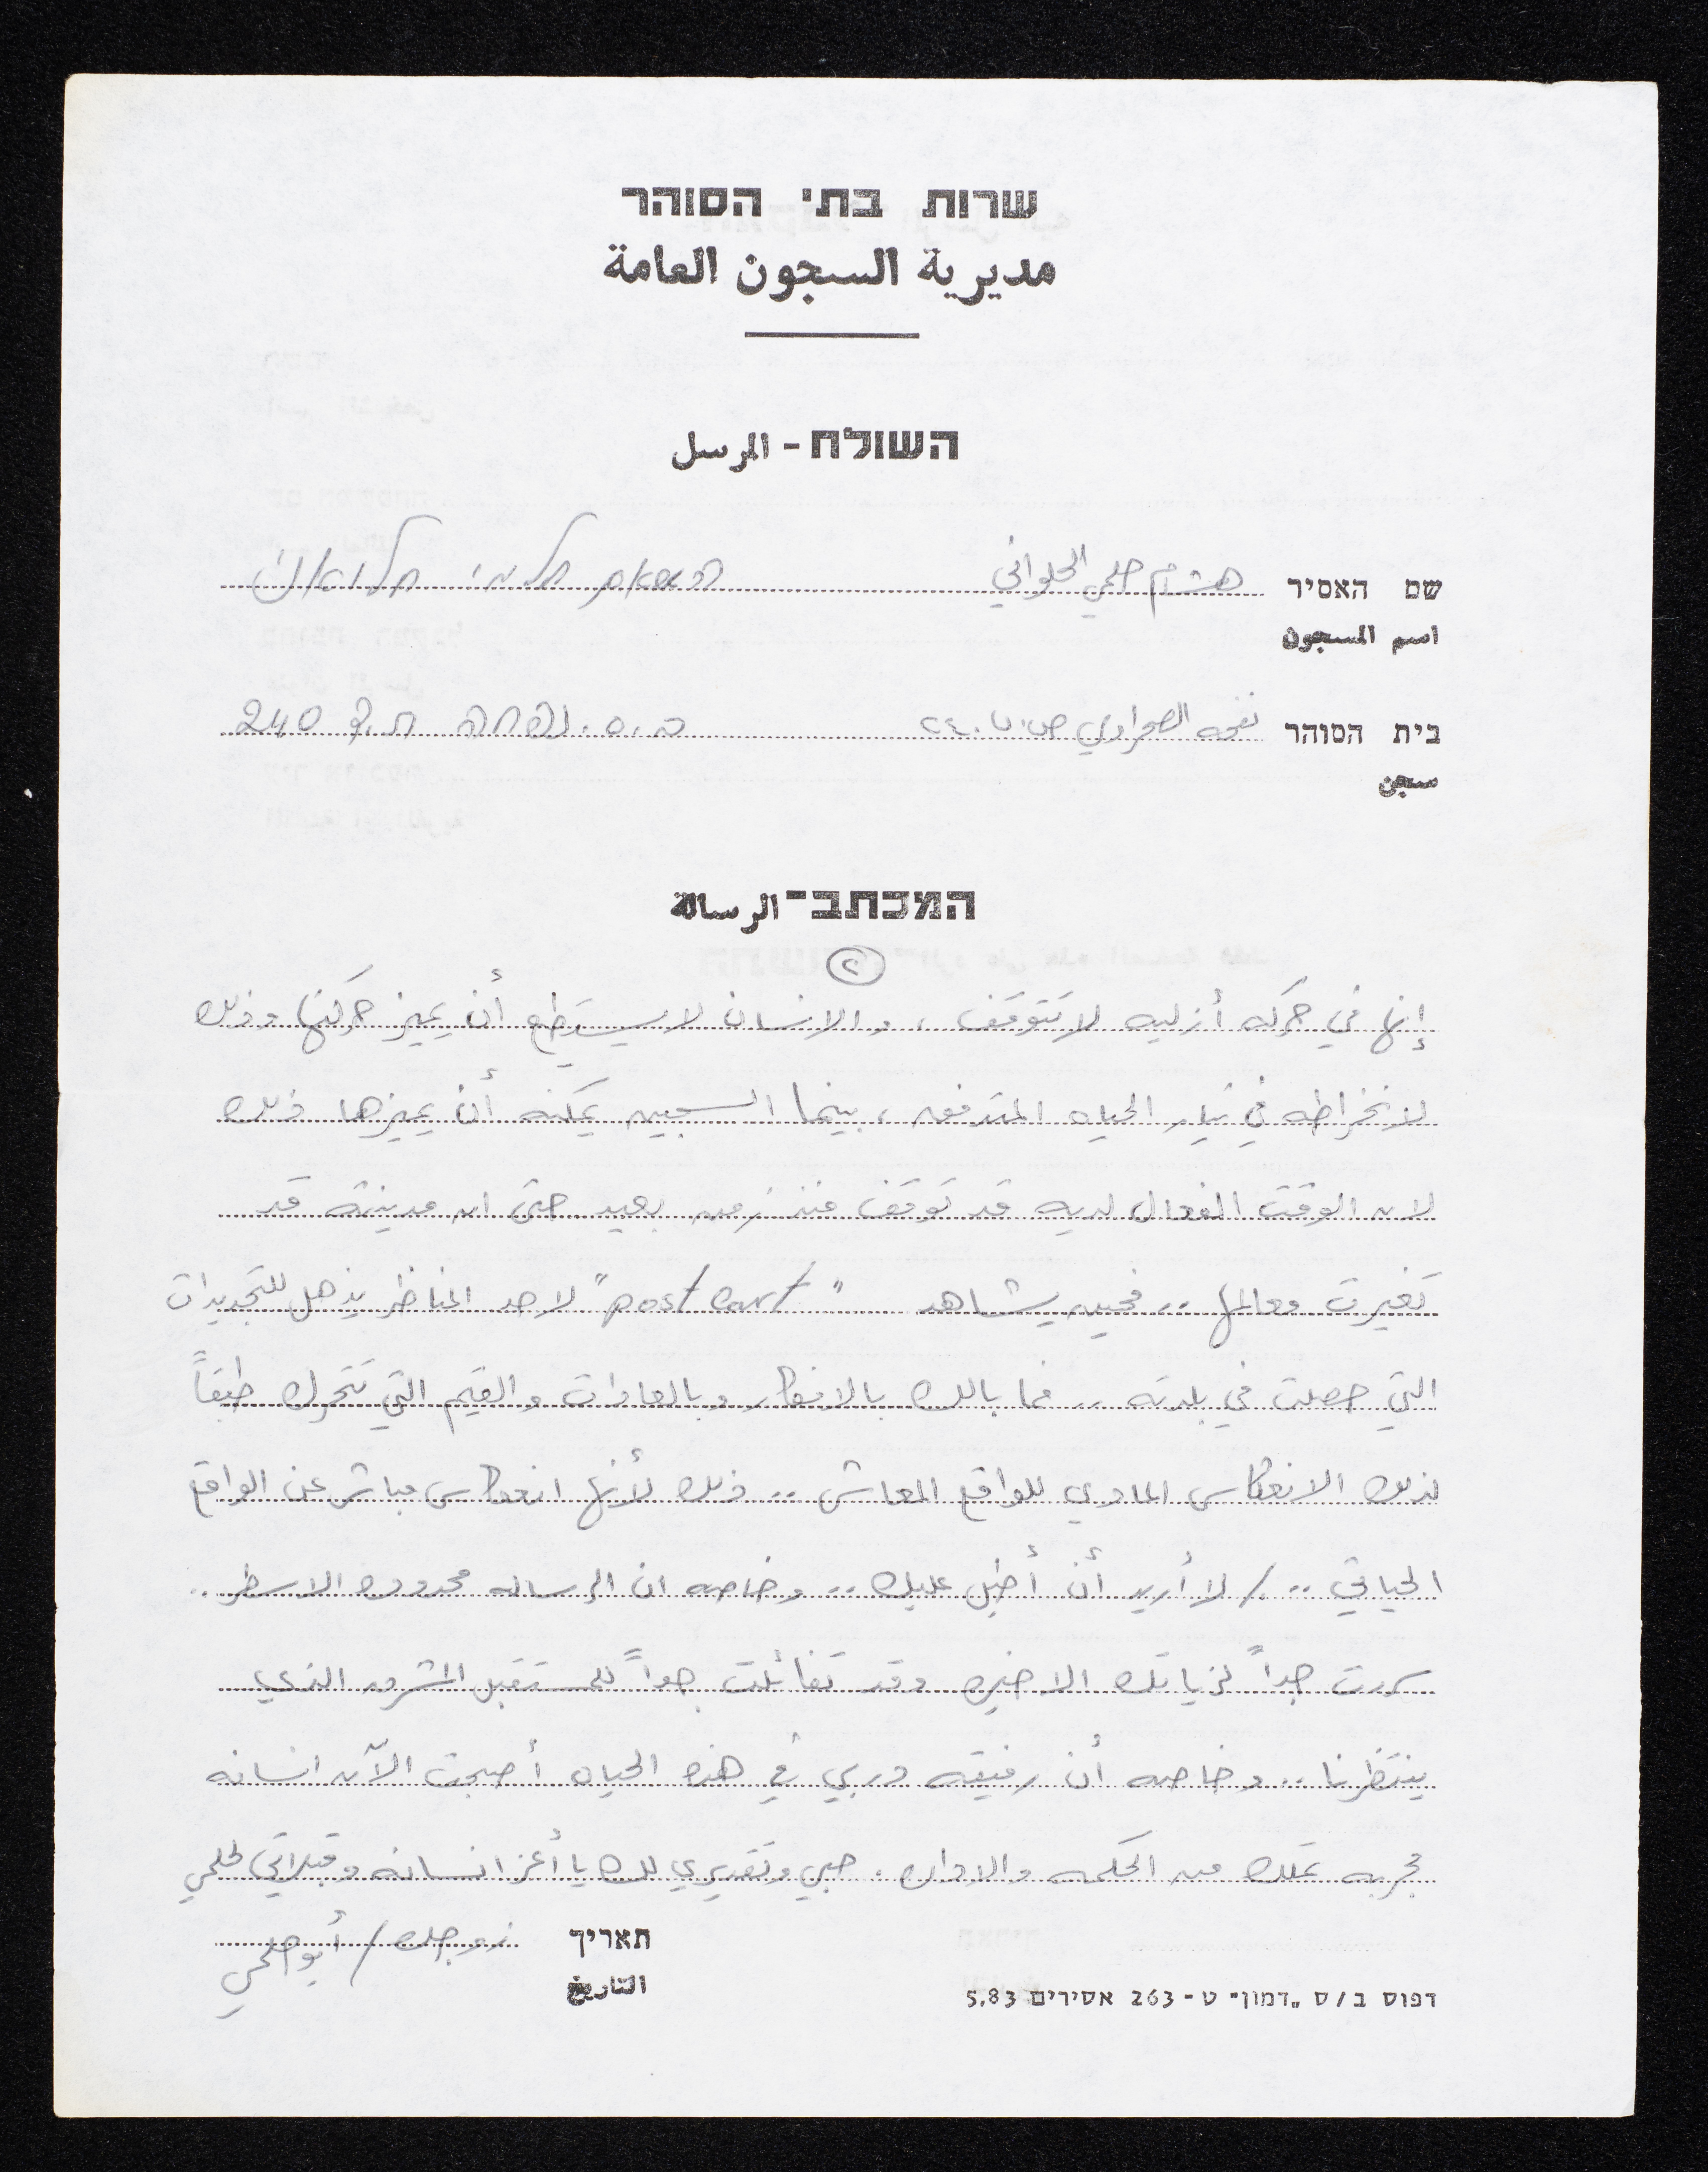 שרות בתי הסוהר
مديرية السجون العامة
השולח - المرسل
שם האסיר هشام حلمي الحلواني השאם חלמי חלואני
اسم المسجون
בית הסוהר نفحه الصحراوي ص.ب ٢٤٠ ב.ס. נפחה ת.ד 240
سجن
המכתב - الرسالة
٢
إنها في حركه أزليه لا تتوقف ، والانسان لا يستطيع أن يميز حركتها وذلك
لانخراطه في تيار الحياه المتدفعه ، بينما السجين يمكنه أن يميزها ذلك
لان الوقت الفعال لديه قد توقف منذ زمن بعيد حتى ان مدينته قد
تغيرت معالمها .. فحين يشاهد "post cart" لاحد المناظر يذهل للتجديدات
التي حصلت في بلدته .. فما بالك بالافكار وبالعادات والقيم التي تتحرك طبقاً
لذلك الانعكاس المادي للواقع المعاش .. ذلك لأنها انعكاس مباشر عن الواقع
الحياتي .. / لا أريد أن أطيل عليك .. وخاصه ان الرساله محدوده الاسطر ..
سررت جداً لزياتك الاخيره وقد تفائلت جداً للمستقبل المشرق الذي
ينتظرنا .. وخاصه أن رفيقه دربي في هذه الحياه أصبحت الآن انسانه
مجربه تملك من الحكمه والادراك . حبي وتقديري لك يا أعز انسانه وقبلاتي لحلمي
תאריך زوجك / أبو حلمي
التاريخ
דפוס ב/ס „דמון" ט - 263 אסירים 5.83